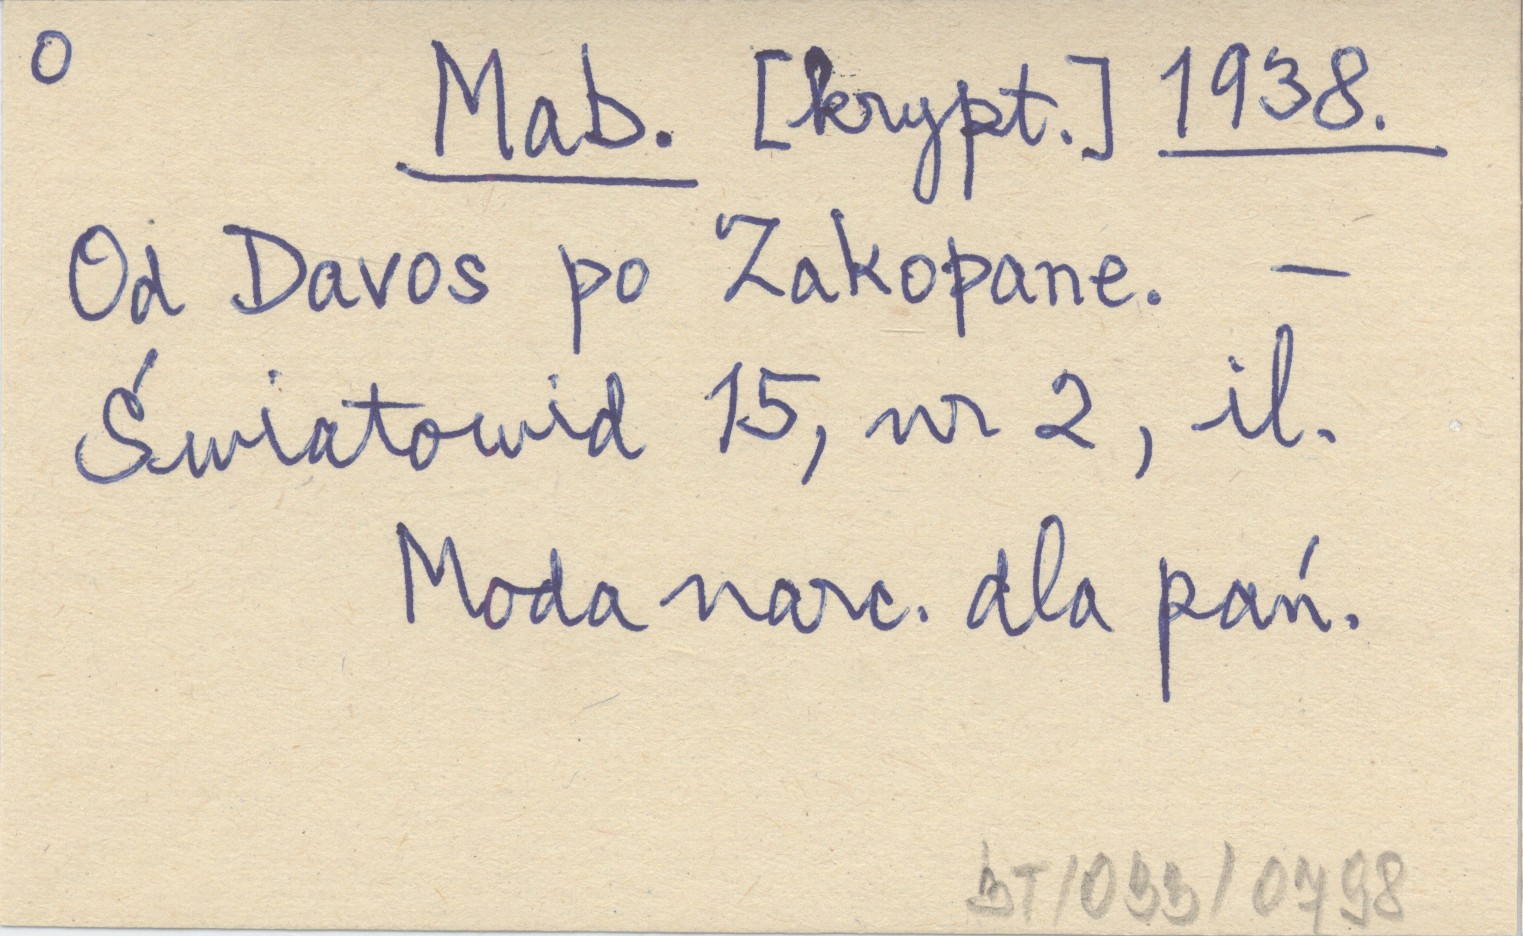 O
Mab. [krypt.] 1938.
Od Davos po Zakopane. –
Światowid 15, nr 2, il.
Moda narc. dla pań.
BT/033/0798